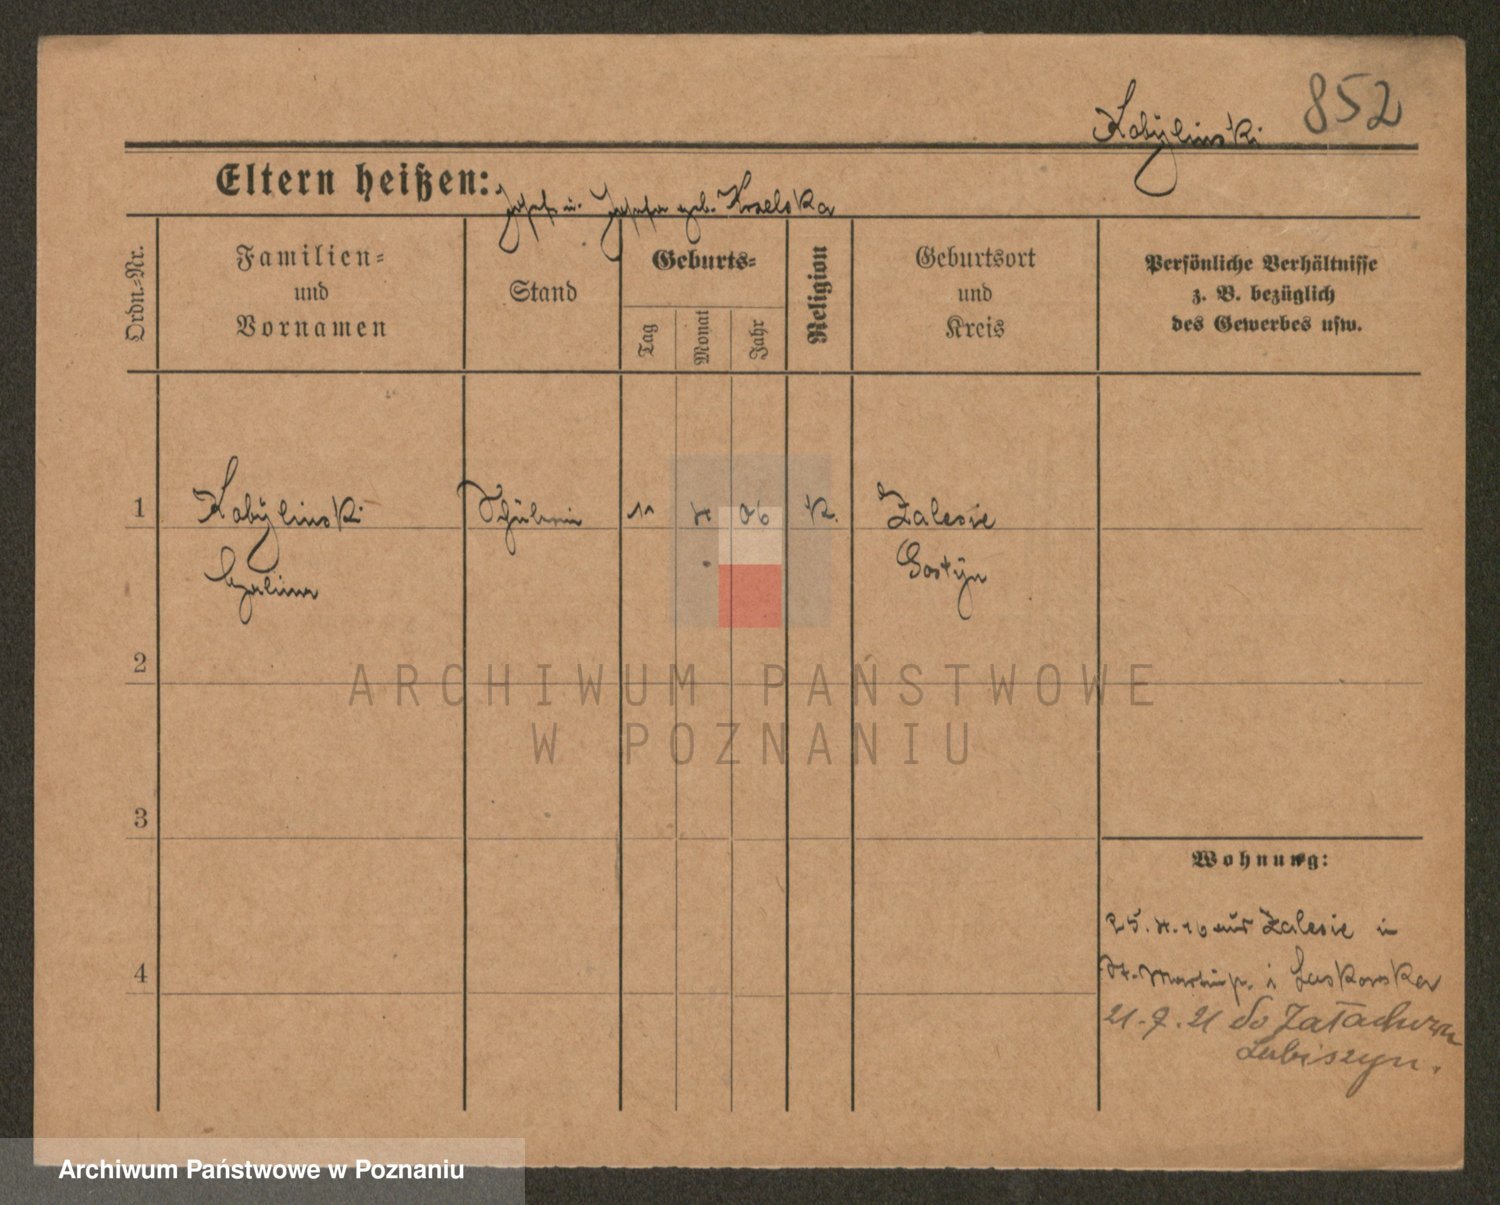 Kobylinski 852
Eltern heißen: Josef u. Josefa geb.
Ordn.-Nr.
Familien-
und
Vornamen
Stand
Geburts-
Tag
Monat
Jahr
Religion
Geburtsort
und
Kreis
Persönliche Verhältnisse
z. B. bezüglich
des Gewerbes usw.
1 Kobylinski Schülerin 11 06 K. Zalesie
Gostyn
2
ARCHIWUM PAŃSTWOWE
W POZNANIU
3
Wohnung:
25. 4. 16 aus Zalesie in
4 St. Martinstr. Laskowska
21. 7. 21 do
Lubiszyn.
Archiwum Państwowe w Poznaniu